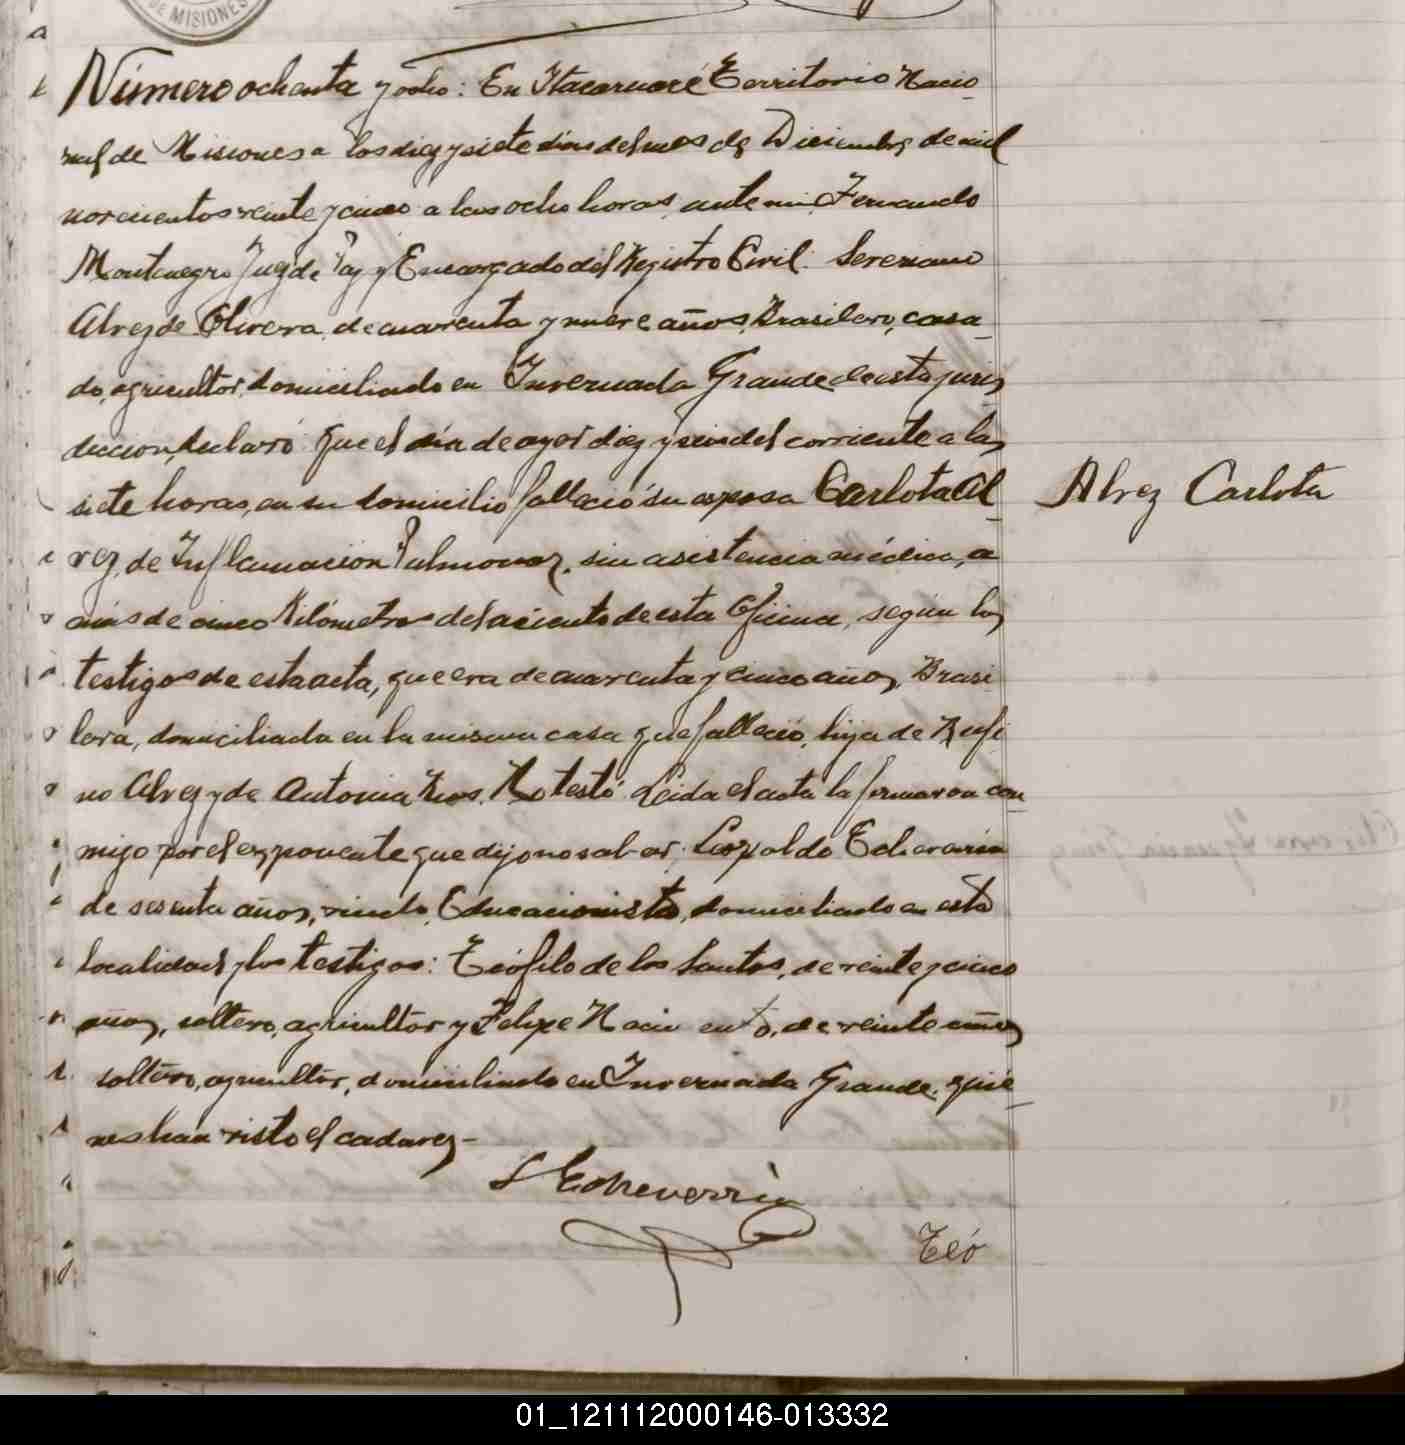 DE MISIONES
Número ochenta y ocho: En Itacaruaré Territorio Nacio-
nal de Misiones a los diez y siete dias del mes de Diciembre de mil
novecientos veinte y cinco a las ocho horas, ante mi Fernando
Montenegro Juez de Paz y Encargado del Registro Civil. Severiano
Alvez de Olivera, de cuarenta y nueve años, Brasilero, casa-
do, agricultor, domiciliado en Invernada Grande de esta juris
diccion, declaró: Que el día de ayer diez y seis del corriente a las
siete horas, en su domicilio falleció su esposa Carlota Al-
vez, de Inflamación Pulmonar, sin asistencia médica, a
más de cinco Kilómetros del asiento de esta Oficina, según los
testigos de esta acta, que era de cuarenta y cinco años, Brasi
lera, domiciliada en la misma casa que falleció, hija de Rufi
no Alvez y de Antonia Rios. No testó. Leida el acta la firmaron con-
migo por el exponente que dijo no saber, Leopoldo Echevarria
de sesenta años, viudo, Educacionista, domiciliado en esta
localidad y los testigos: Teófilo de los Santos, de veinte y cinco
años, soltero, agricultor y Felipe Nacimento, de veinte años
soltero, agricultor, domiciliado en Invernada Grande, quie-
nes han visto el cadaver-
Alvez Carlota
L Echeverria
Teó
01_121112000146-013332